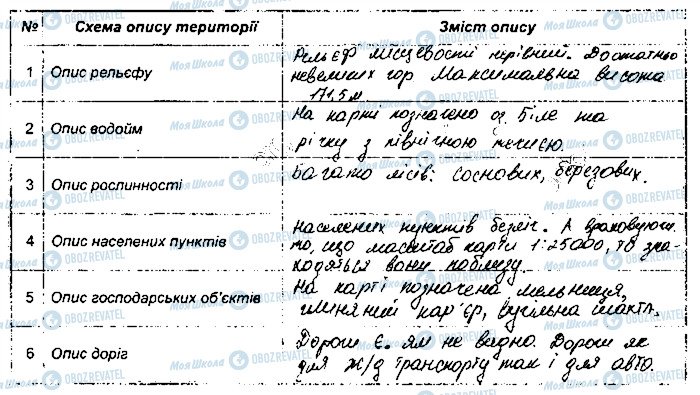 № Схема опису території Зміст опису
1 Опис рельєфу
Рельєф місцевості нерівний. Достатньо
невеликих гор Максимальна висота
171,5 м
2 Опис водойм
На карти позначено оз. Біле та
річку з північною течією.
3 Опис рослинності
Багато лісів: соснових, березових.
4 Опис населених пунктів
Населених пунктів безліч. А враховуючи
то, що масштаб карти 1:25000, то зна-
ходяться вони поблизу
5 Опис господарських об'єктів
На карті позначена мельниця,
глиняний кар'єр, вугільна шахта.
6 Опис доріг
Дороги є. ям не видно. Дороги як
для ж/д транспорту так і для авто.
МояШкола OBOZREVATEL